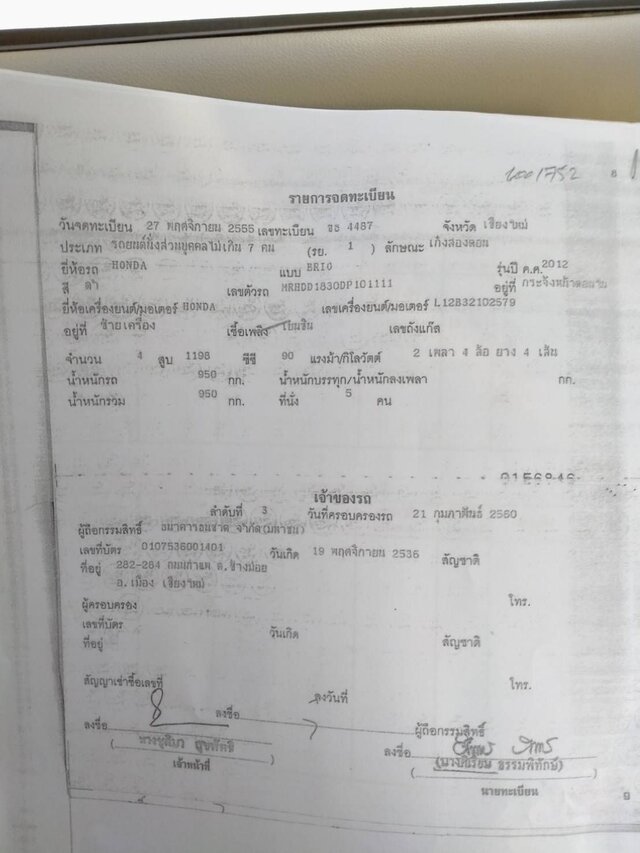 รายการจดทะเบียน
วันจดทะเบียน 27 พฤศจิกายน 2555 เลขทะเบียน 4487 จังหวัด เชียงใหม่
ประเภท รถยนต์นั่งส่วนบุคคลไม่เกิน 7 คน (รย. 1 ) ลักษณะ เก๋งสองตอน
ยี่ห้อรถ HONDA แบบ BRIO รุ่นปี ค.ศ. 2012
สี ดำ เลขตัวรถ MRHDD1830DP101111 อยู่ที่ กระจังหน้าตอนใน
ยี่ห้อเครื่องยนต์/มอเตอร์ HONDA เลขเครื่องยนต์/มอเตอร์ L12B32102579
อยู่ที่ ซ้ายเครื่อง เชื้อเพลิง เบนซิน เลขถังแก๊ส
จำนวน 4 สูบ 1198 ซีซี 90 แรงม้า/กิโลวัตต์ 2 เพลา 4 ล้อ ยาง 4 เส้น
น้ำหนักรถ 950 กก. น้ำหนักบรรทุก/น้ำหนักลงเพลา กก.
น้ำหนักรวม 950 กก. ที่นั่ง 5 คน
เจ้าของรถ
ลำดับที่ 3 วันที่ครอบครองรถ 21 กุมภาพันธ์ 2560
ผู้ถือกรรมสิทธิ์ ธนาคารธนชาต จำกัด(มหาชน)
เลขที่บัตร 0107536001401 วันเกิด 19 พฤศจิกายน 2536 สัญชาติ
ที่อยู่ 282-284 ถนนท่าแพ ต.ช้างม่อย
อ.เมือง เชียงใหม่
ผู้ครอบครอง โทร.
เลขที่บัตร วันเกิด สัญชาติ
ที่อยู่
สัญญาเช่าซื้อเลขที่ ลงวันที่ โทร.
ลงชื่อ ลงชื่อ ผู้ถือกรรมสิทธิ์
ลงชื่อ
ธรรมพิทักษ์)
เจ้าหน้าที่
นายทะเบียน
9